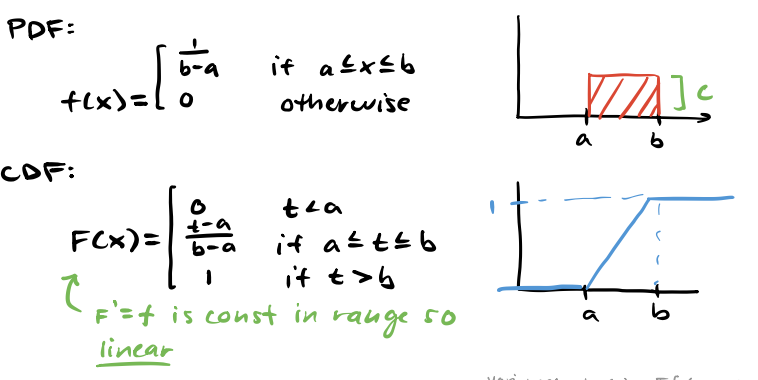 PDF:
f(x) = [ 1/(b-a) if a ≤ x ≤ b
0 otherwise
c
a b
CDF:
F(x) = [ 0 t < a
(t-a)/(b-a) if a ≤ t ≤ b
1 if t > b
F' = f is const in range so
linear
1
a b